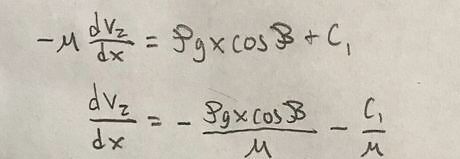 -μ dv_z/dx = ρgx cos β + C₁
dv_z/dx = - ρgx cos β/μ - C₁/μ